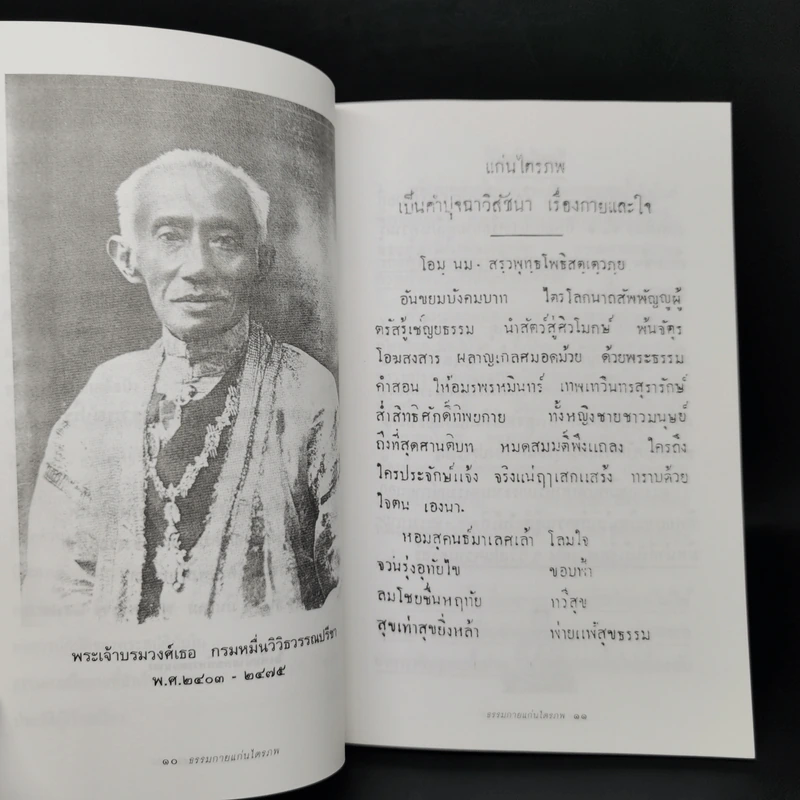 พระเจ้าบรมวงศ์เธอ กรมหมื่นวิวิธวรรณปรีชา
พ.ศ.๒๔๐๓ - ๒๔๗๕
๑๐ ธรรมกายแก่นไตรภพ
แก่นไตรภพ
เป็นคำปุจฉาวิสัชนา เรื่องกายและใจ
โอมฺ นมะ สรฺวพุทฺธโพธิสตฺเตฺวภฺย
อันขยมบังคมบาท ไตรโลกนาถสัพพัญญูผู้
ตรัสรู้เชัญยธรรม นำสัตว์สู่ศิวโมกษ์ พ้นจัตุร
โอฆสงสาร ผลาญเกลศมอดม้วย ด้วยพระธรรม
คำสอน ให้อมรพรหมินทร์ เทพเทวินทรสุรารักษ์
ส่ำสิทธิศักดิ์ทิพยกาย ทั้งหญิงชายชาวมนุษย์
ถึงที่สุดศานติบท หมดสมมติพึงแถลง ใครถึง
ใครประจักษ์แจ้ง จริงแน่ฤๅเสกแสร้ง ทราบด้วย
ใจตน เองนา.
หอมสุคนธ์มาเลศเล้า โลมใจ
จวนรุ่งอุทัยไข ขอบฟ้า
ลมโชยชื่นหฤทัย ทวีสุข
สุขเท่าสุขยิ่งหล้า พ่ายแพ้สุขธรรม
ธรรมกายแก่นไตรภพ ๑๑